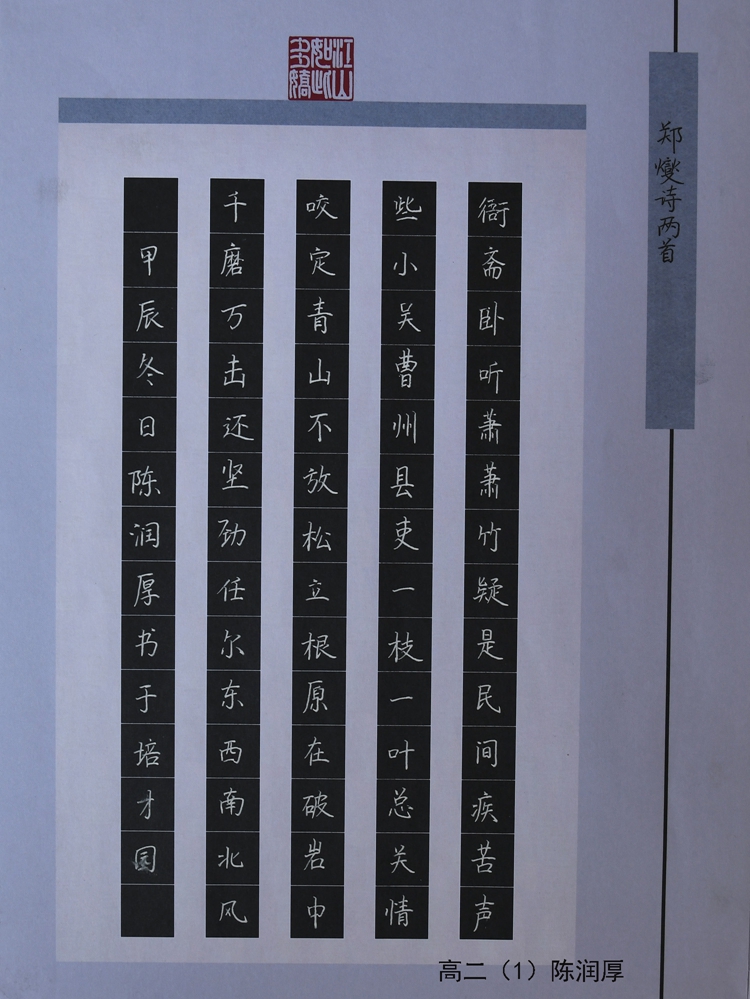 郑燮诗两首
衙斋卧听萧萧竹疑是民间疾苦声
些小吴曹州县吏一枝一叶总关情
咬定青山不放松立根原在破岩中
千磨万击还坚劲任尔东西南北风
甲辰冬日陈润厚书于培才园
江山如此多娇
高二（1）陈润厚